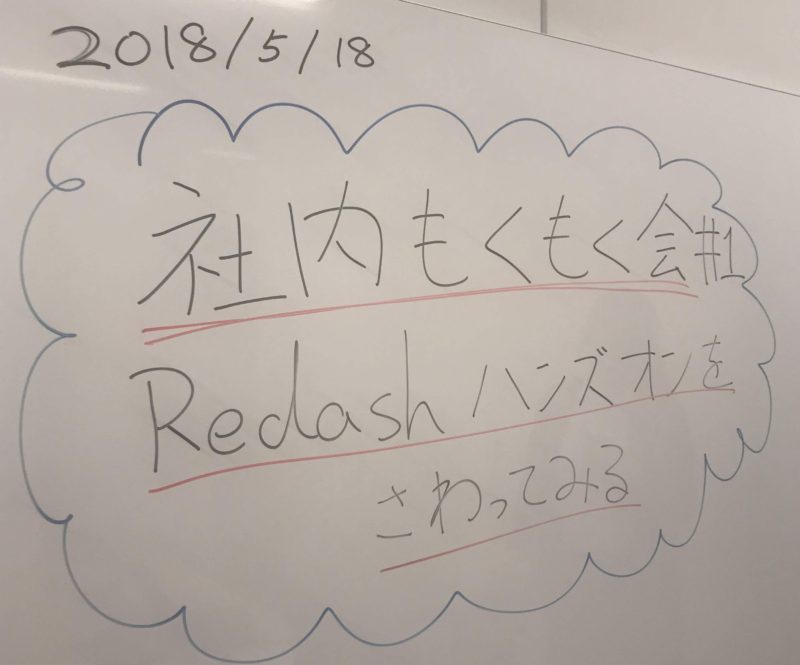 2018/5/18
社内もくもく会#1
Redashハンズオンを
さわってみる